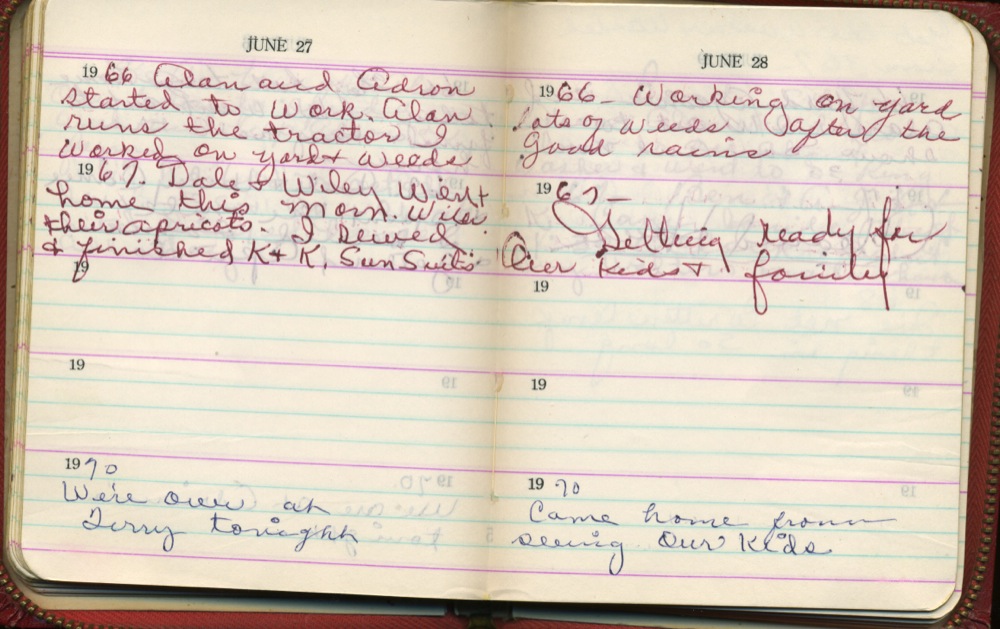 JUNE 27
1966 Alan and Adron
started to work. Alan
runs the tractor I
worked on yard & weeds
1967. Dale & Wiley went
home this morn. Wiley
their apricots. I sewed
& finished K & K, Sun Suits
19
19
1970
We're over at
Terry tonight
JUNE 28
1966 - Working on yard
lots of weeds after the
good rains
1967 -
Getting ready for
Our Kids & family
19
19
1970
Came home from
seeing Our Kids